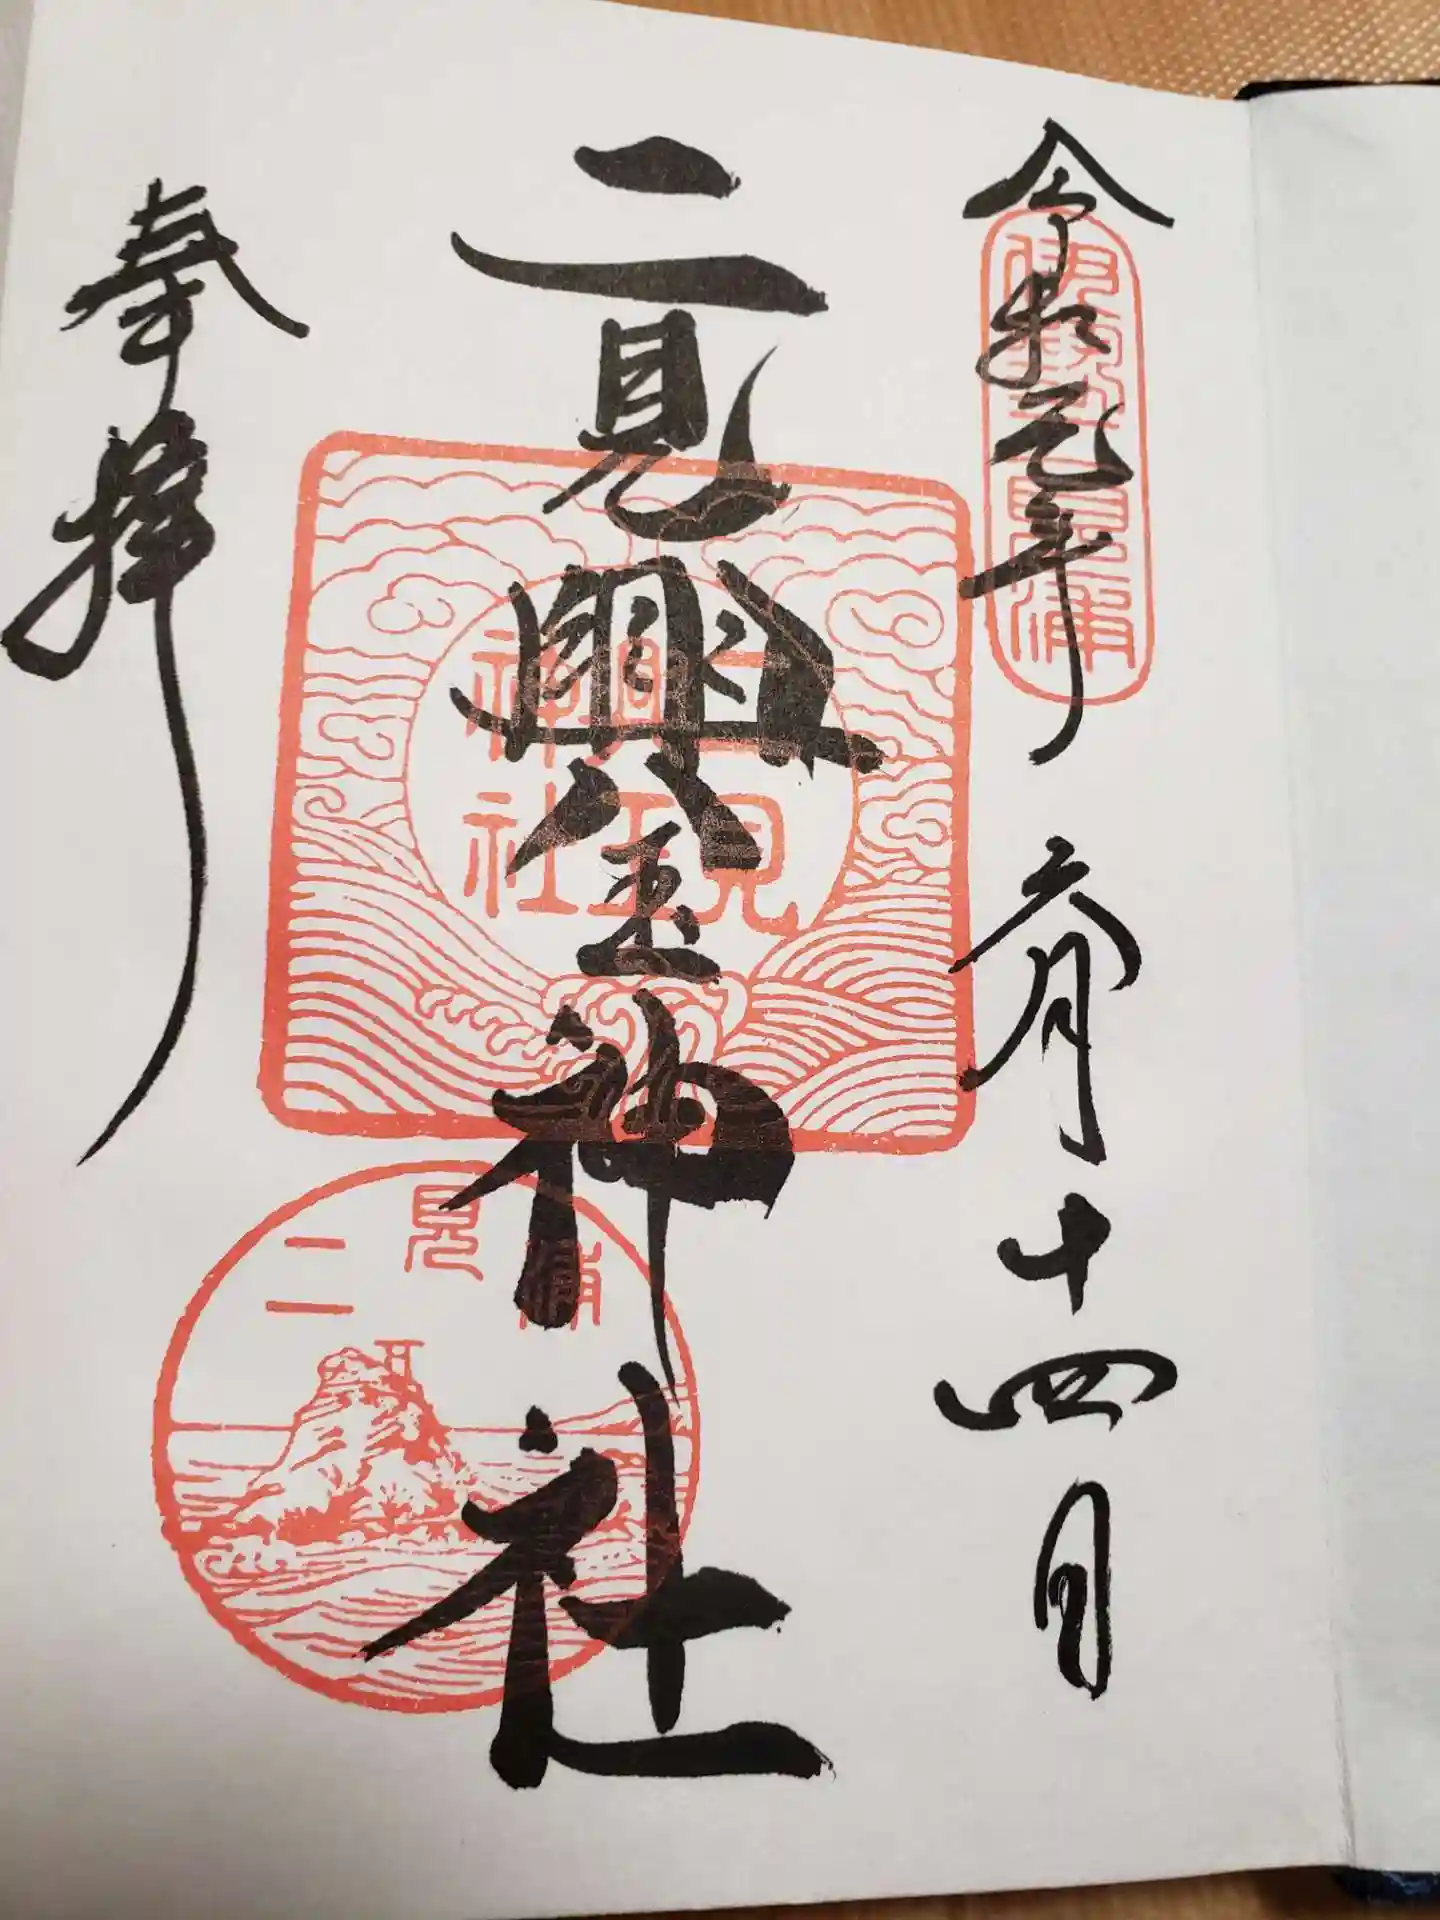 令和元年 六月十四日
伊勢二見浦
二見興玉神社
二見興玉神社
二見浦
奉拝